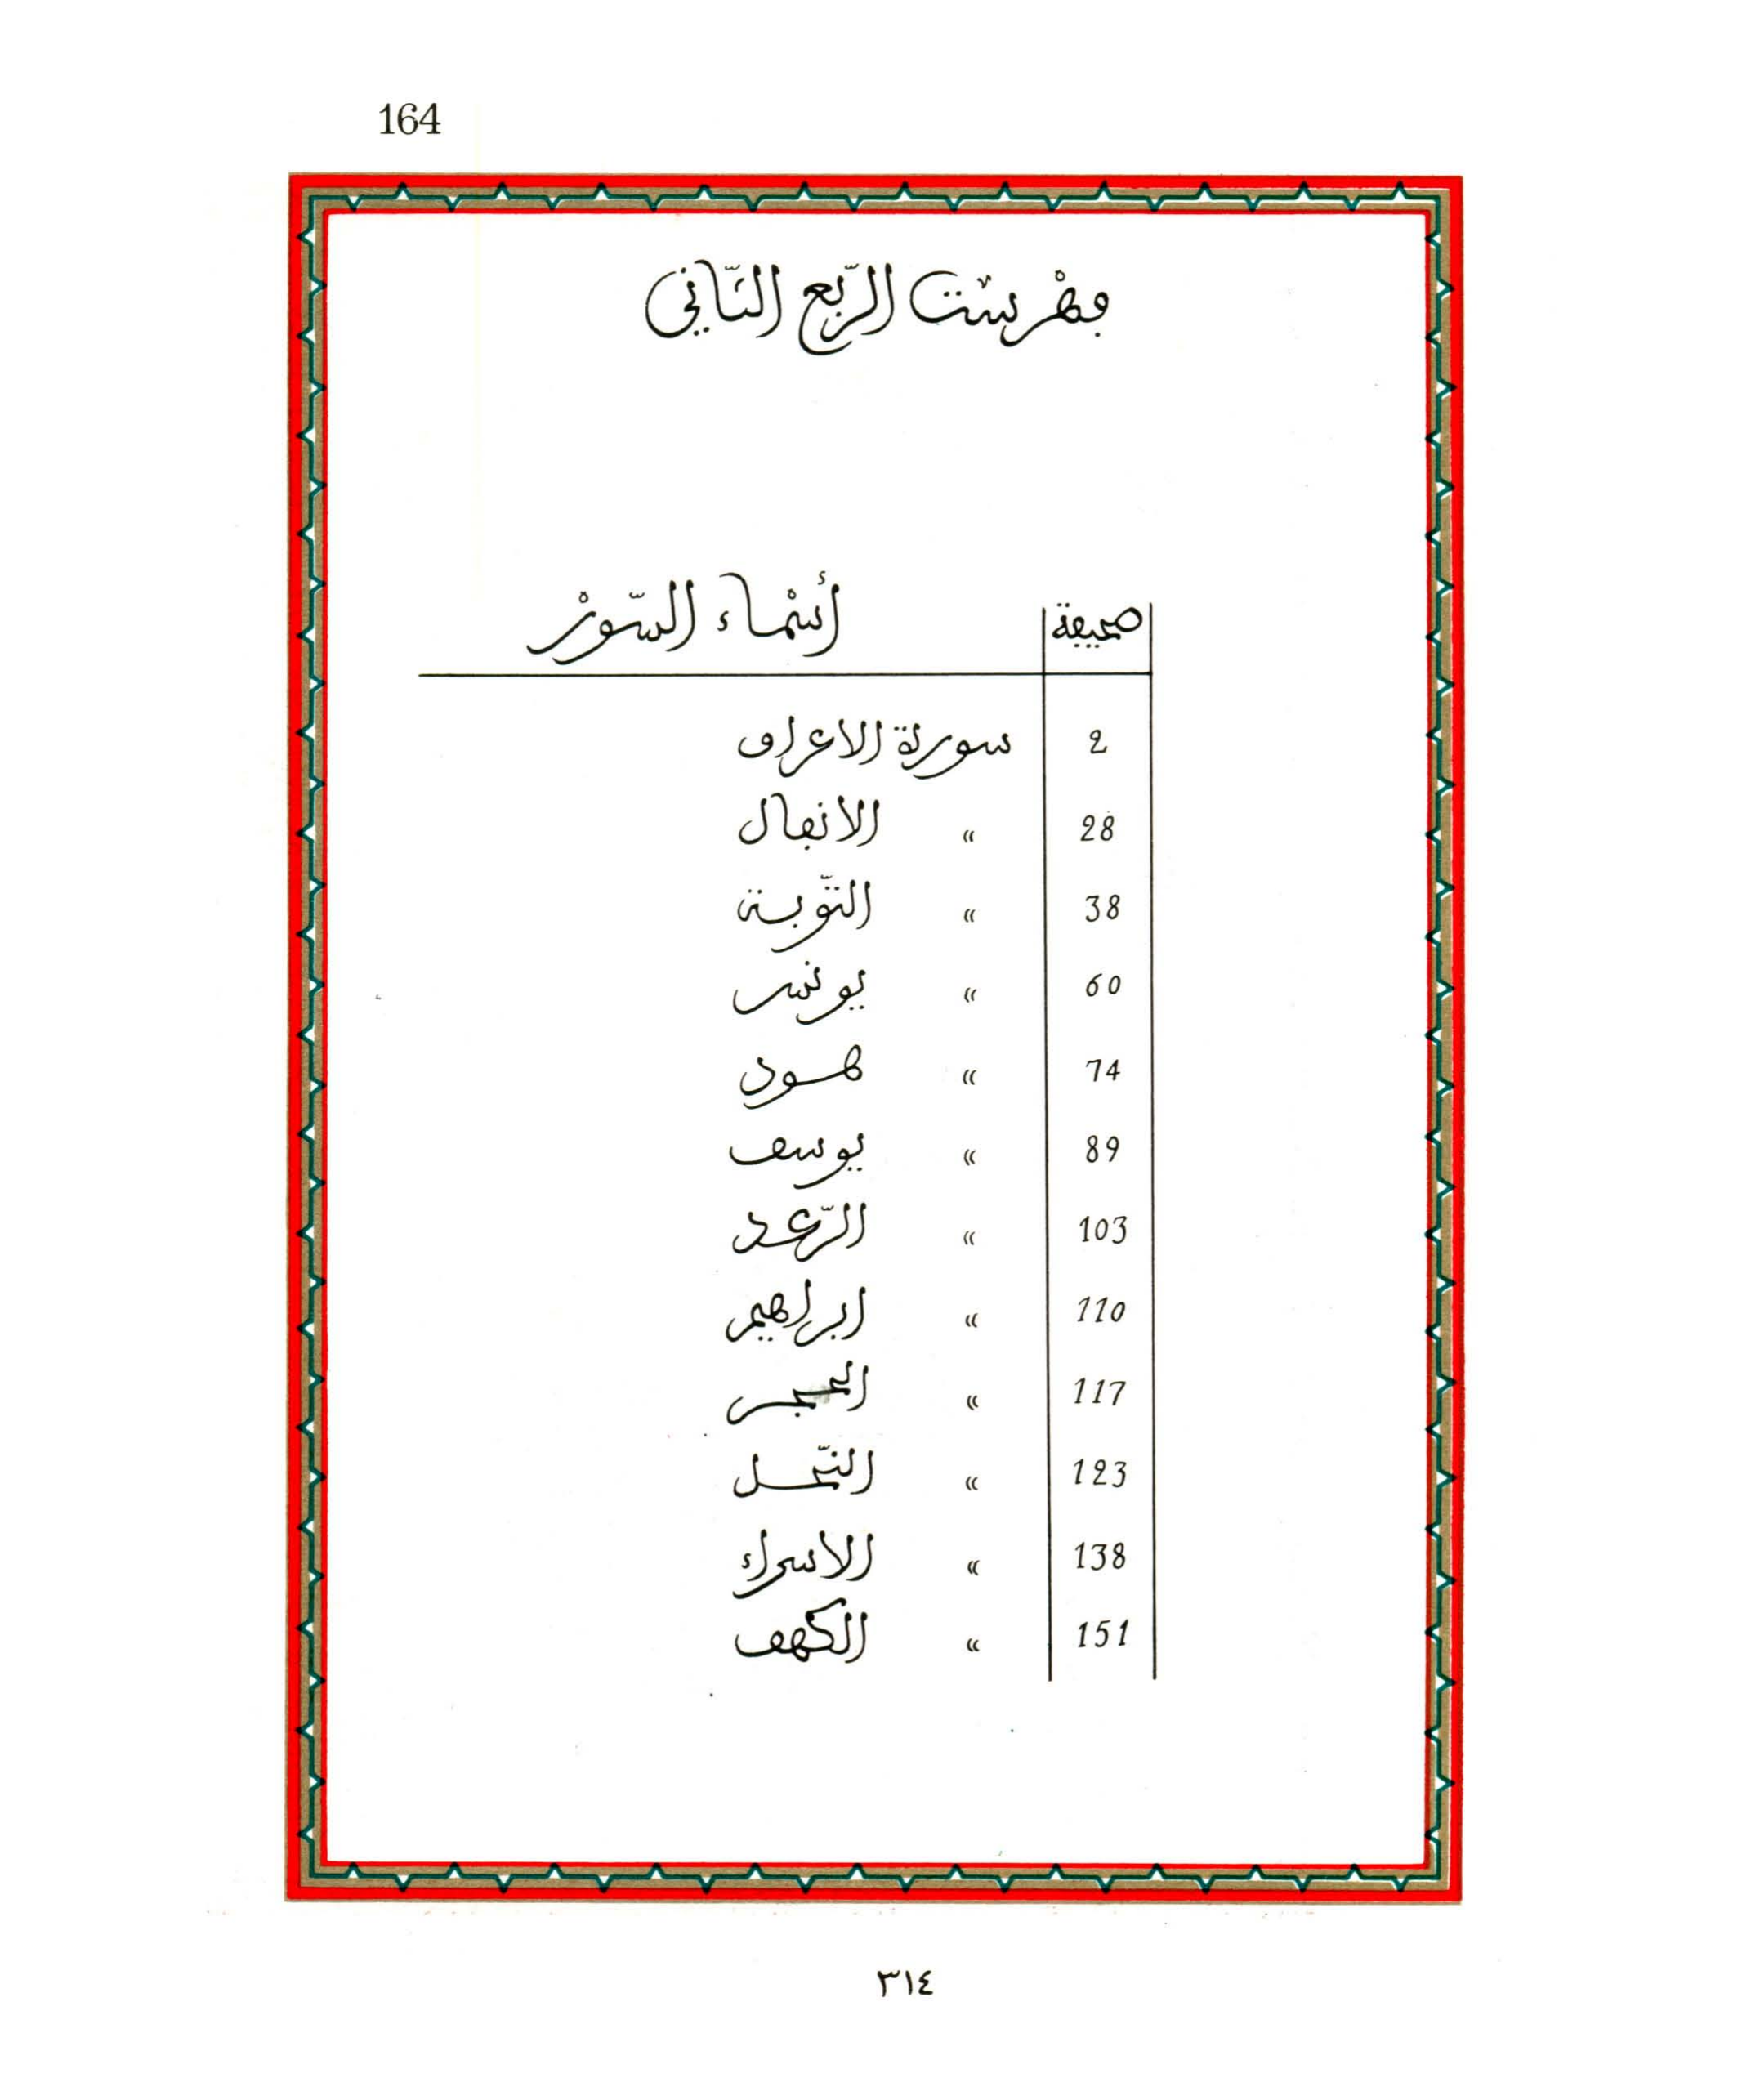 164
فهْرسْت الرّبع الثّاني
صحيفة أسْماء السّورْ
2 سورة الاعراف
28 " الانفال
38 " التّوبة
60 " يونس
74 " هود
89 " يوسف
103 " الرّعد
110 " ابراهيم
117 " الحجر
123 " النّحل
138 " الاسراء
151 " الكهف
٣١٤